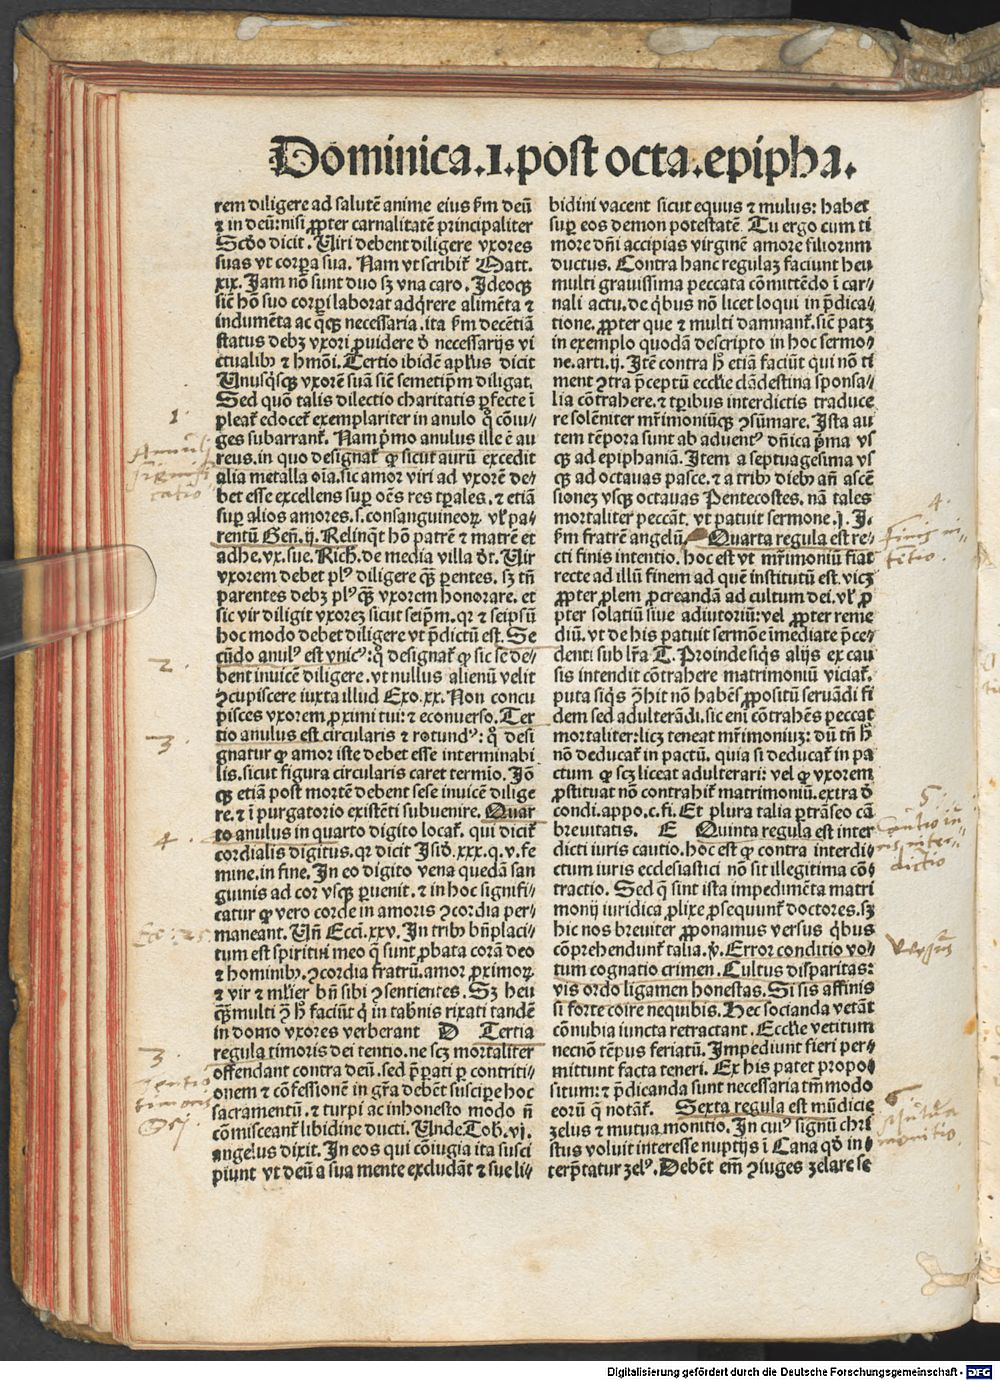 Dominica.1.post octa.epipha.
rem diligere ad salutē anime eius ẜm deū
⁊ in deū: nisi ꝓpter carnalitatē principaliter
Scd̕o dicit. Uiri debent diligere vxores
suas vt corpa sua. Nam vt scribit̕ Matt.
xix. Jam nō sunt duo sꝫ vna caro. Jdeoqꝫ
sic̄ hō suo corpi laborat adqrere alimēta ⁊
indumēta ac qcqꝫ necessaria. ita ẜm decētiā
status debꝫ vxori ꝓuidere d̕ necessarijs vi
ctualibꝰ ⁊ hmōi. Tertio ibidē aplus dicit
Unusqsqꝫ vxorē suā sic̄ semetipm̄ diligat.
Sed quō talis dilectio charitatis ꝑfecte ī
pleat̕ edocet̕ exemplariter in anulo q̊ cōiu⸗
ges subarrant̕. Nam pmo anulus ille ē au
reus. in quo designat̕ ꝙ sicut aurū excedit
alia metalla oīa. sic amor viri ad vxorē de⸗
bet esse excellens sup oēs res tpales. ⁊ etiā
sup alios amores. s. consanguineoꝝ vl̕ pa⸗
rentū Gen̄. ij. Relinqt hō patrē ⁊ matrē et
adhe. vx. sue. Rich. de media villa d̕t. Uir
vxorem debet plꝰ diligere qꝫ̄ parentes. sꝫ tn̄
parentes debꝫ plꝰ qꝫ̄ vxorem honorare. et
sic vir diligit vxoreꝫ sicut seipm̄. qr ⁊ seipsū
hoc modo debet diligere vt p̄dictū est. Se
cūdo anulꝰ est vnicꝰ: q̊ designat̕ ꝙ sic se de⸗
bent inuicē diligere. vt nullus alienū velit
ꝯcupiscere iuxta illud Exo. xx. Non concu
pisces vxorem ꝓximi tui: ⁊ econuerso. Ter
tio anulus est circularis ⁊ rotundꝰ: q̊ desi
gnatur ꝙ amor iste debet esse interminabi
lis. sicut figura circularis caret termio. Jō
qꝫ etiā post mortē debent sese inuicē dilige
re. ⁊ ī purgatorio existēti subuenire. Quar
to anulus in quarto digito locat̕. qui dicit̕
cordialis digitus. qr dicit Jsid̕. xxx. q. v. fe
mine. in fine. Jn eo digito vena quedā san
guinis ad cor vsqꝫ puenit. ⁊ in hoc signifi⸗
catur ꝙ vero corde in amoris ꝯcordia per⸗
maneant. Un̄ Ecci. xxv. Jn tribꝰ bn̄placi⸗
tum est spiritui meo q̄ sunt ꝓbata corā deo
⁊ hominibꝰ. ꝯcordia fratrū. amor ꝓximoꝝ.
⁊ vir ⁊ mlier bn̄ sibi ꝯsentientes. Sꝫ heu
qꝫ̄ multi ꝯ̄ h̄ faciūt q̄ in tab̄nis rixati tandē
in domo vxores verberant D Tertia
regula timoris dei tentio. ne scꝫ mortaliter
offendant contra deū. sed p̄parati p contriti⸗
onem ⁊ cōfessionē in gr̄a debēt suscipe hoc
sacramentū. ⁊ turpi ac inhonesto modo n̄
cōmisceant̕ libidine ducti. Unde Tob. vj.
angelus dixit. Jn eos qui cōiugia ita susci
piunt vt deū a sua mente excludāt ⁊ sue li⸗
bidini vacent sicut equus ⁊ mulus: habet
sup eos demon potestatē. Tu ergo cum ti
more dn̄i accipias virginē amore filiorum
ductus. Contra hanc regulaꝫ faciunt heu
multi grauissima peccata cōmittēdo ī car⸗
nali actu. de qbus nō licet loqui in p̄dica⸗
tione. ꝓpter que ⁊ multi damnant̕. sic̄ patꝫ
in exemplo quodā descripto in hoc sermo⸗
ne. arti. ij. Jtē contra h̄ etiā faciūt qui nō ti
ment ꝯtra p̄ceptū eccl̕ie clādestina sponsa⸗
lia cōtrahere. ⁊ tpibus interdictis traduce
re solēniter mr̄imoniūqꝫ ꝯsūmare. Jsta au
tem tēpora sunt ab aduentꝰ dn̄ica pma vs
qꝫ ad epiphaniā. Jtem a septuagesima vs
qꝫ ad octauas pasce. ⁊ a tribꝰ diebꝰ an̄ ascē
sionez vsqꝫ octauas Pentecostes. nā tales
mortaliter peccāt. vt patuit sermone. j. J.
ẜm fratrē angelū. Quarta regula est re⸗
cti finis intentio. hoc est vt mr̄imoniū fiat
recte ad illū finem ad quē institutū est. vicꝫ
ꝓpter plem pcreandā ad cultum dei. vl̕ ꝓ
pter solatiū siue adiutoriū: vel ꝓpter reme
diū. vt de his patuit sermōe imediate p̄ce⸗
denti sub lr̄a T. Proinde siqs alijs ex cau
sis intendit cōtrahere matrimoniū viciat̕.
puta siqs ꝯ̄hit nō habēs ꝓpositū seruādi fi
dem sed adulterādi. sic eni cōtrahēs peccat
mortaliter: licꝫ teneat mr̄imoniuꝫ: dū tn̄ h̄
nō deducat̕ in pactū. quia si deducat̕ in pa
ctum ꝙ scꝫ liceat adulterari: vel ꝙ vxorem
ꝓstituat nō contrahit̕ matrimoniū. extra d̕
condi. appo. c. fi. Et plura talia ptrāseo cā
breuitatis. E Quinta regula est inter
dicti iuris cautio. hoc est ꝙ contra interdi⸗
ctum iuris ecclesiastici nō sit illegitima cō⸗
tractio. Sed q̄ sint ista impedimēta matri
monij iuridica ꝓlixe psequunt̕ doctores. sꝫ
hic nos breuiter ꝓponamus versus qbus
cōprehendunt̕ talia. v̄. Error conditio vo⸗
tum cognatio crimen. Cultus disparitas:
vis ordo ligamen honestas. Si sis affinis
si forte coire nequibis. Hec socianda vetāt
cōnubia iuncta retractant. Eccl̕ie vetitum
necnō tēpus feriatū. Jmpediunt fieri per⸗
mittunt facta teneri. Ex his patet propo⸗
situm: ⁊ p̄dicanda sunt necessaria tm̄modo
eorū q̄ notāt̕. Sexta regula est mūdicie
zelus ⁊ mutua monitio. Jn cuiꝰ signū chri
stus voluit interesse nuptijs ī Cana qd̕ in⸗
terp̄tatur zelꝰ. Debēt em̄ ꝯiuges zelare se
1.
Annuli
significatio
2.
3.
4.
Ec: 25
3.
tentio
timoris
Dei.
4.
finis in⸗
tētio.
5.
Cautio iu⸗
ris inter⸗
dictio
Versus
6
mutua
monitio.
Digitalisierung gefördert durch die Deutsche Forschungsgemeinschaft - DFG